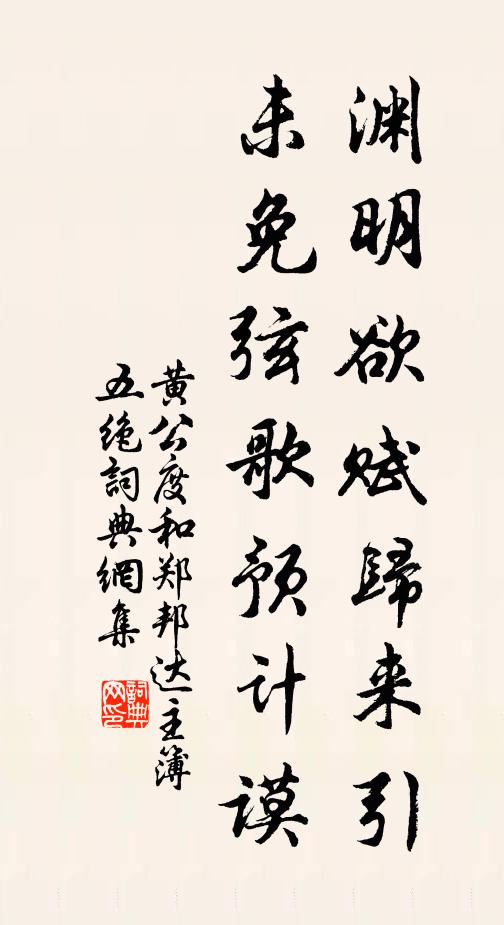 渊明欲赋歸来引
未免弦歌预计谟
黄公度和郑邦达主簿
五绝詞典網集
詞典网印